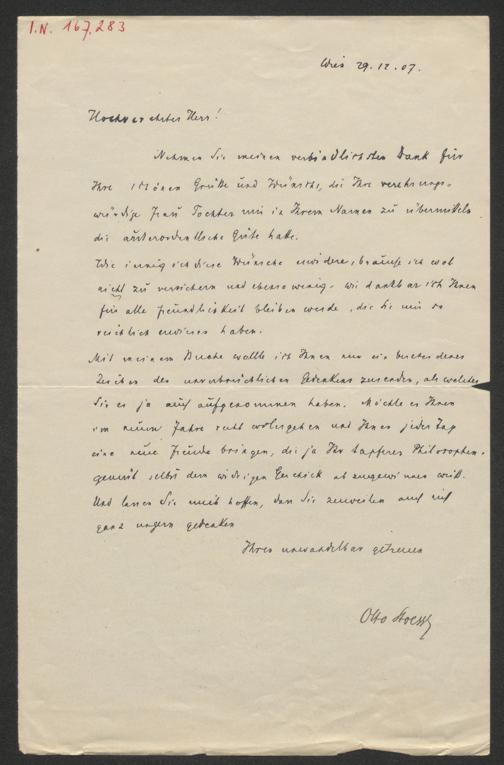 I.N. 167.283
Wien 29.12.07.
Hochverehrter Herr!
Nehmen Sie meinen verbindlichsten Dank für
Ihre schönen Grüße und Wünsche, die Ihre verehrungs-
würdige Frau Tochter mir in Ihrem Namen zu übermitteln
die außerordentliche Güte hatte.
Wie innig ich diese Wünsche erwidere, brauche ich wol
nicht zu versichern und ebenso wenig, wie dankbar ich Ihnen
für alle Freundlichkeit bleiben werde, die Sie mir so
reichlich erwiesen haben.
Mit meinem Buche wollte ich Ihnen nur ein bescheidenes
Zeichen des unverbrüchlichen Gedenkens zusenden, als welches
Sie es ja auch aufgenommen haben. Möchte es Ihnen
im neuen Jahre recht wolergehen und Ihnen jeder Tag
eine neue Freude bringen, die ja Ihr tapferes Philosophen-
gemüt selbst dem widrigen Geschick abzugewinnen weiß.
Und lassen Sie mich hoffen, dass Sie zuweilen auch nicht
ganz ungern gedenken
Ihres unwandelbar getreuen
Otto Stoessl